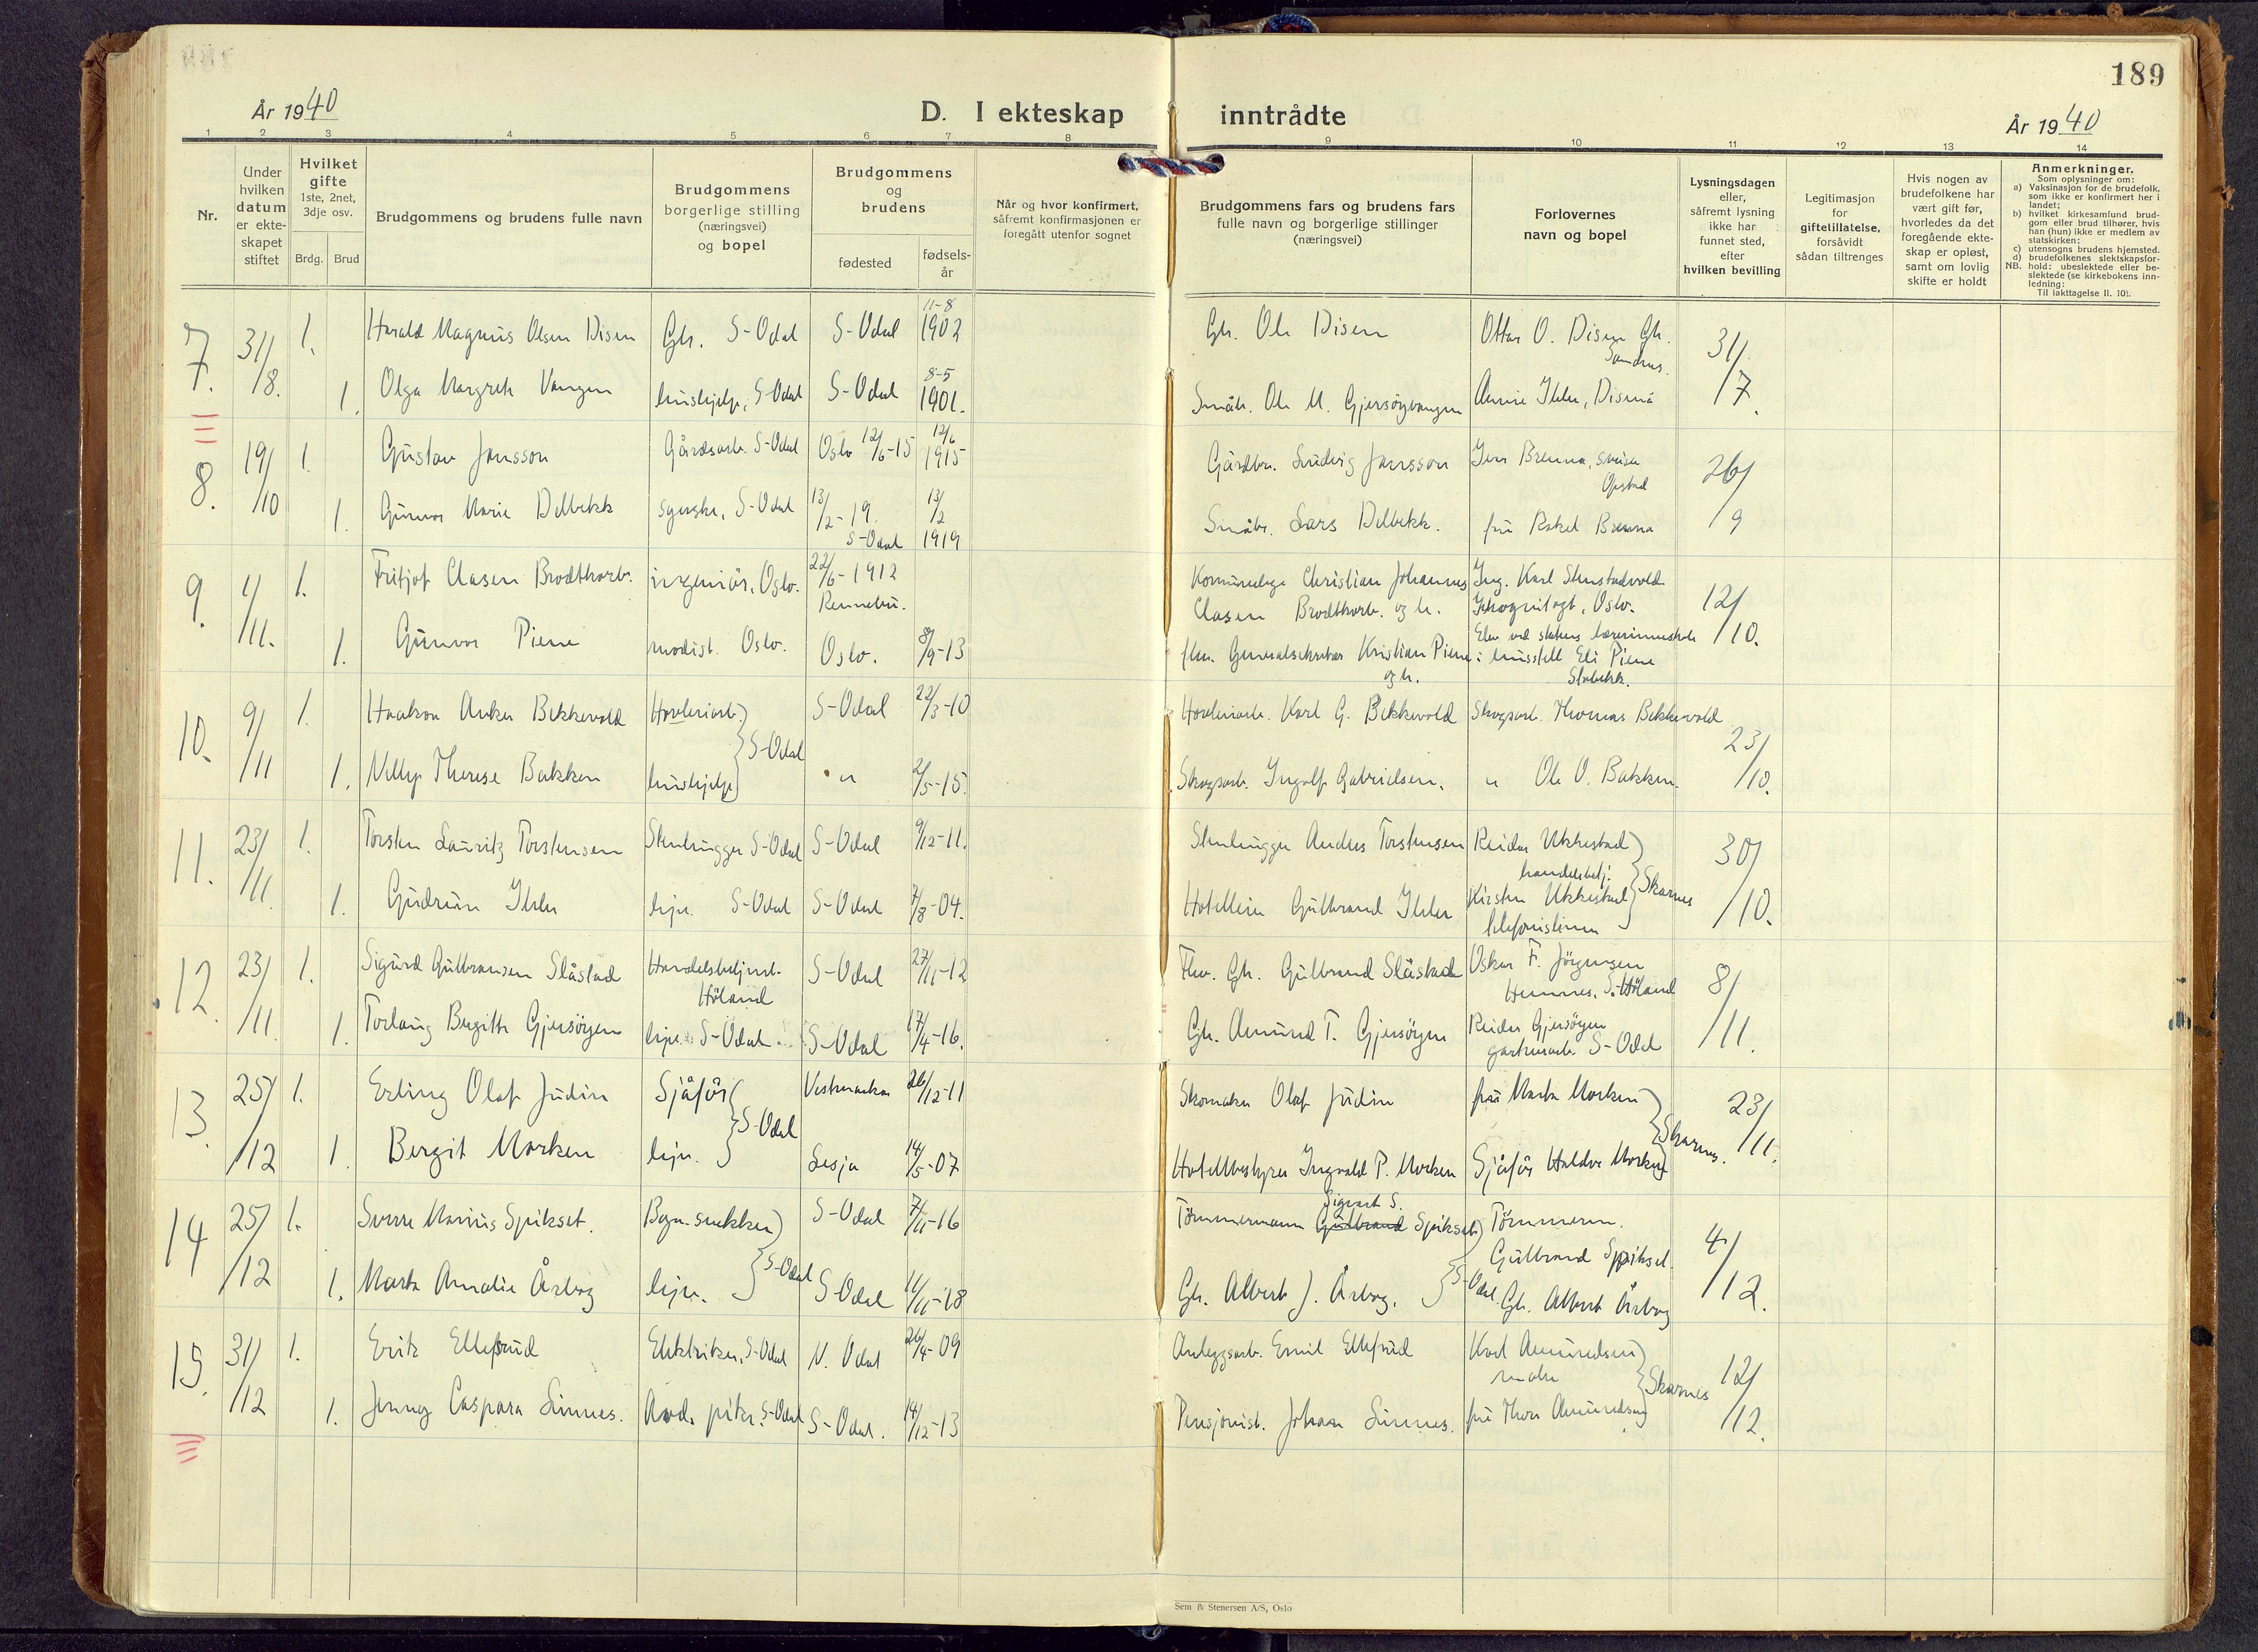 189
År 1940
D. I ekteskap inntrådte
År 1940
1 2 3 4 5 6 7 8 9 10 11 12 13 14
Nr.
Under hvilken datum er ekteskapet stiftet
Hvilket gifte 1ste, 2net, 3dje osv.
Brdg. Brud
Brudgommens og brudens fulle navn
Brudgommens borgerlige stilling (næringsvei) og bopel
Brudgommens og brudens
fødested
fødsels-år
Når og hvor konfirmert, såfremt konfirmasjonen er foregått utenfor sognet
Brudgommens fars og brudens fars fulle navn og borgerlige stillinger (næringsvei)
Forlovernes navn og bopel
Lysningsdagen eller, såfremt lysning ikke har funnet sted, efter hvilken bevilling
Legitimasjon for giftetillatelse, forsåvidt sådan tiltrenges
Hvis nogen av brudefolkene har vært gift før, hvorledes da det foregående ekteskap er opløst, samt om lovlig skifte er holdt
Anmerkninger.
Som oplysninger om:
a) Vaksinasjon for de brudefolk, som ikke er konfirmert her i landet;
b) hvilket kirkesamfund brudgom eller brud tilhører, hvis han (hun) ikke er medlem av statskirken;
c) utensogns brudens hjemsted.
d) brudefolkenes slektskapsforhold: ubeslektede eller beslektede (se kirkebokens innledning:
NB.
Til iakttagelse II. 10).
7. 31/8. 1. Harald Magnus Olsen Disen Gbr. S-Odal S-Odal 11-8 1902 Gbr. Ole Disen Ottar O. Disen Gbr. Sandnes. 31/7.
1. Olga Margrete Vangen hushjelp, S-Odal S-Odal 8-5 1901. Småbr. Ole M. Gjersøyvangen Annie Ihler, Disenå
8. 19/10 1. Gustav Jansson Gårdsarb. S-Odal Oslo 12/6-15 12/6 1915 Gårdbr. Ludvig Jansson Jens Brenna, sveiser Opstad 26/9
1. Gunvor Marie Delbekk syerske, S-Odal 13/2-19. S-Odal 13/2 1919 Småbr. Lars Delbekk. fru Rakel Brenna
9. 1/11. 1. Fritjof Clasen Brodtkorb. ingeniör, Oslo. 22/6-1912 Rennebu. Kommunelege Christian Johannes Clasen Brodtkorb. og h. Ing. Karl Stenstadvold Oslo. 12/10.
1. Gunvor Piene modist. Oslo. Oslo. 8/9-13 fhv. Generalsekretær Kristian Piene og h. Elev ved statens lærerinneskole i husstell Eli Piene Stabekk.
10. 9/11 1. Haakon Anker Bekkevold Høvleriarb. S-Odal S-Odal 22/3-10 Høvleriarb. Karl G. Bekkevold Skogsarb. Thomas Bekkevold 23/10.
1. Nelly Therese Bakken hushjelp " 2/5-15. Skogsarb. Ingolf Gabrielsen. " Ole O. Bakken.
11. 23/11. 1. Torsten Lauritz Torstensen Stenhugger S-Odal S-Odal 9/12-11. Stenhugger Anders Torstensen Reidar Ukkestad handelsbetj. Skarnes 30/10.
1. Gudrun Ihler hjv. S-Odal S-Odal 7/8-04. Hotelleier Gulbrand Ihler Kirsten Ukkestad telefonistinne
12. 23/11. 1. Sigurd Gulbrandsen Slåstad Handelsbetjent. Höland S-Odal 27/11-12 Fhv. Gbr. Gulbrand Slåstad Oskar F. Jörgensen Hemnes. S. Höland 8/11.
1. Torlaug Birgitte Gjersöyen hjv. S-Odal S-Odal 17/4-16. Gbr. Amund T. Gjersöyen Reidar Gjersöyen gartnerarb. S-Odal
13. 25/12 1. Erling Olaf Judin Sjåför S-Odal Vestmarka 26/12-11 Skomaker Olaf Judin fru Marta Morken Skarnes. 23/11.
1. Bergit Morken hjv. Lesja 14/5-07 Hotellbestyrer Ingvald P. Morken Sjåför Haldor Morken
14 25/12 1. Sverre Marius Spikset. Bygn. snekker S-Odal S-Odal 7/11-16 Tömmermann Gulbrand Sigvart S. Spikset S-Odal. Tömmerm. Gulbrand Spikset. 4/12.
1. Marta Amalie Åsbog hjv. S-Odal 11/11-18 Gbr. Albert J. Åsbog. Gbr. Albert Åsbog
15. 31/12 1. Erik Ellefsrud Elektriker, S-Odal N. Odal 26/4-09 Anleggsarb. Emil Ellefsrud Karl Amundsen maler Skarnes 12/12.
1. Jenny Caspara Linnes. S-Odal S-Odal. 14/12-13 Pensjonist. Johan Linnes. fru Thora Amundsen
Sem & Stenersen A/S, Oslo